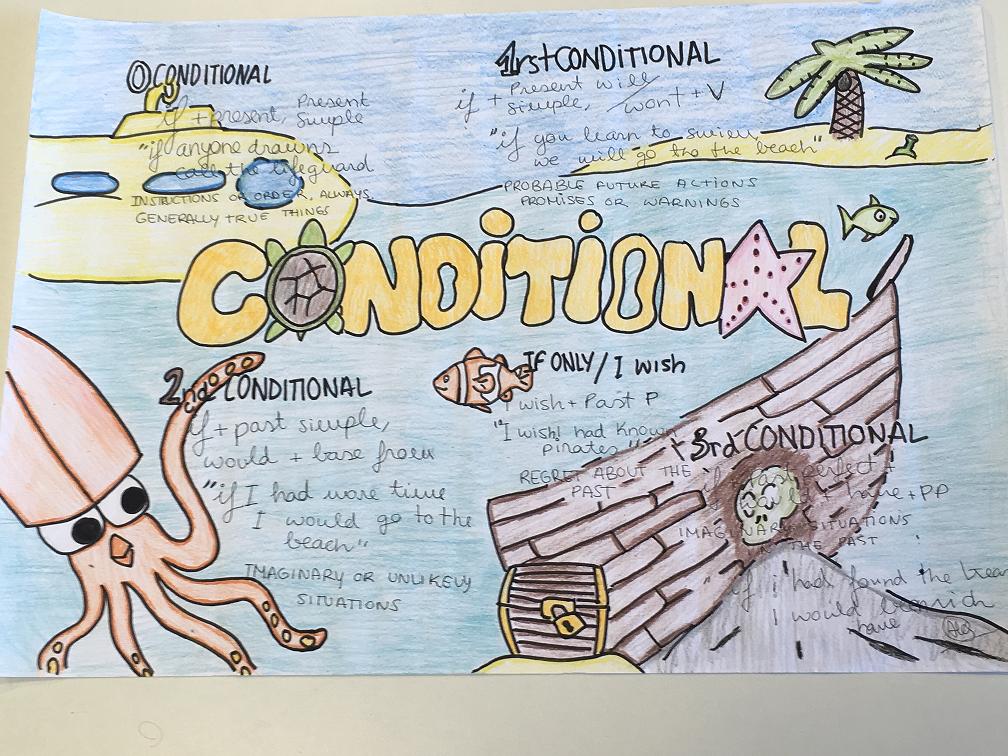 0 CONDITIONAL
if + present, Present
Simple
"if anyone drawns
call the lifeguard
INSTRUCTIONS OR ORDER, ALWAYS
GENERALLY TRUE THINGS
1rst CONDITIONAL
if + Present simple, will/wont + V
"if you learn to swim
we will go tho the beach"
PROBABLE FUTURE ACTIONS
PROMISES OR WARNINGS
CONDITIONAL
2nd CONDITIONAL
if + past simple,
would + base from
"if I had more time
I would go to the
beach"
IMAGINARY OR UNLIKELY
SITUATIONS
IF ONLY / I wish
I wish + Past P
"I wish I had known
pirates"
REGRET ABOUT THE
PAST
3rd CONDITIONAL
if + past perfect +
+ have + PP
IMAGINARY SITUATIONS
IN THE PAST
"if i had found the
I would rich
have